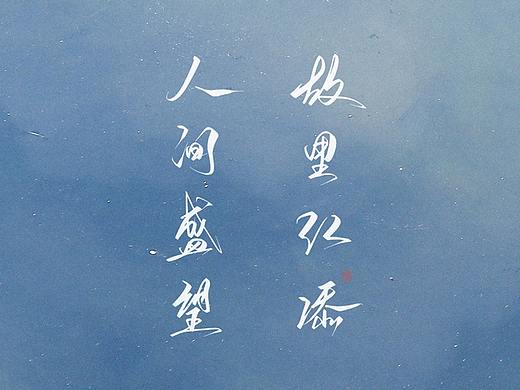 故里江添
人间盛望